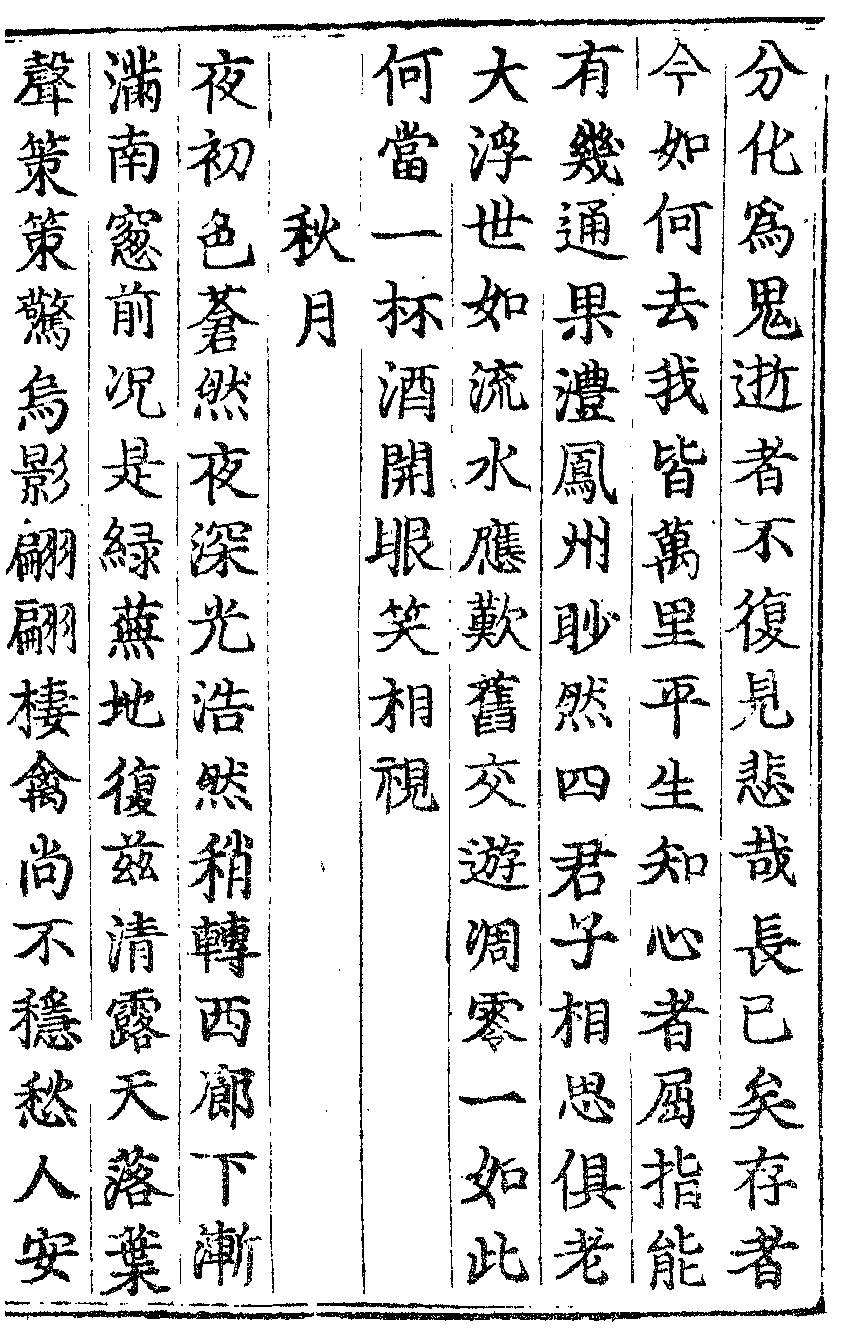 分化為鬼逝者不復見悲哉長已矣存者
今如何去我皆萬里平生知心者屈指能
有幾通果澧鳳州眇然四君子相思俱老
大浮世如流水應歎舊交遊凋零一如此
何當一杯酒開眼笑相視
秋月
夜初色蒼然夜深光浩然稍轉西廊下漸
滿南窓前况是緑蕪地復兹清露天落葉
聲策策驚烏影翩翩棲禽尚不穩愁人安